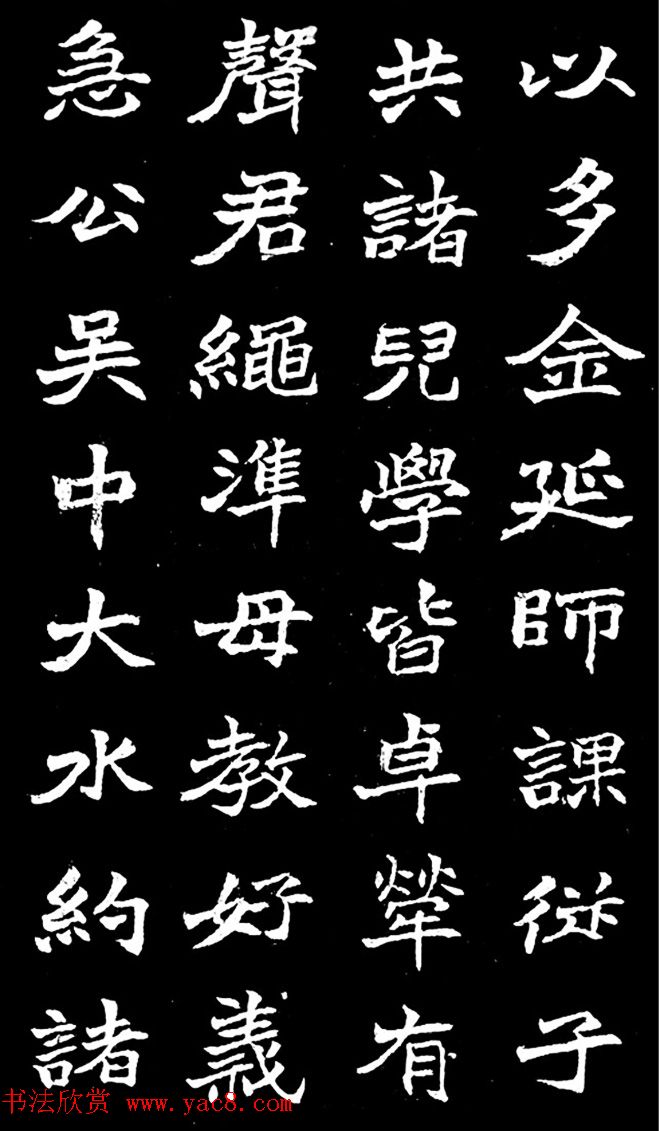 以多金延師課從子
共諸兒學皆卓犖有
聲君繩準母教好義
急公吳中大水約諸
书法欣赏 www.yac8.com